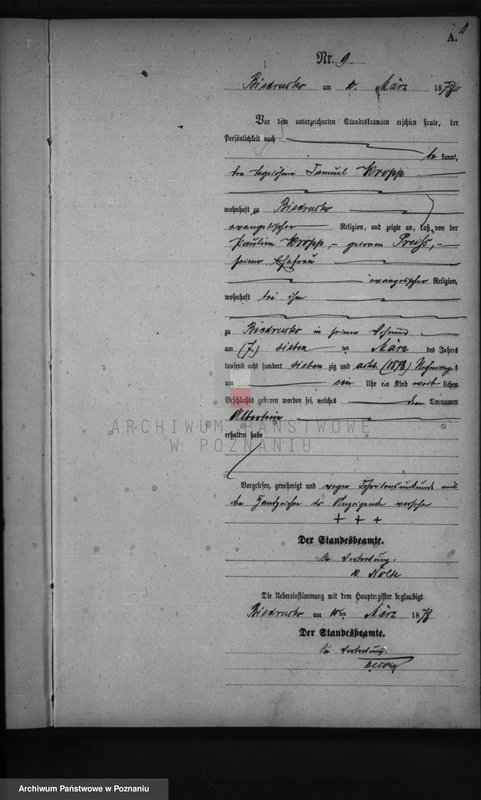 A.
Nr. 9
Biedrusko am 10. März 1878
Vor dem unterzeichneten Standesbeamten erschien heute, der
Persönlichkeit nach
be kannt,
der Tagelöhner Samuel Kropp
wohnhaft zu Biedrusko
evangelischer Religion, und zeigte an, daß von der
Pauline Kropp, geborene Preiß,
seiner Ehefrau
evangelischer Religion,
wohnhaft bei ihm
zu Biedrusko in seiner Wohnung
am (7.) sieben ten März des Jahres
tausend acht hundert sieben zig und acht (1878) Nachmittag s
um ein Uhr ein Kind weib lichen
Geschlechts geboren worden sei, welches den Vornamen
Albertine
erhalten habe
Vorgelesen, genehmigt und wegen Schreibensunkunde mit
den Handzeichen des Anzeigenden versehen
+ + +
Der Standesbeamte.
In Vertretung.
Nolte
Die Uebereinstimmung mit dem Hauptregister beglaubigt
Biedrusko am 10ten März 1878
Der Standesbeamte.
In Vertretung.
ARCHIWUM PAŃSTWOWE
W POZNANIU
Archiwum Państwowe w Poznaniu